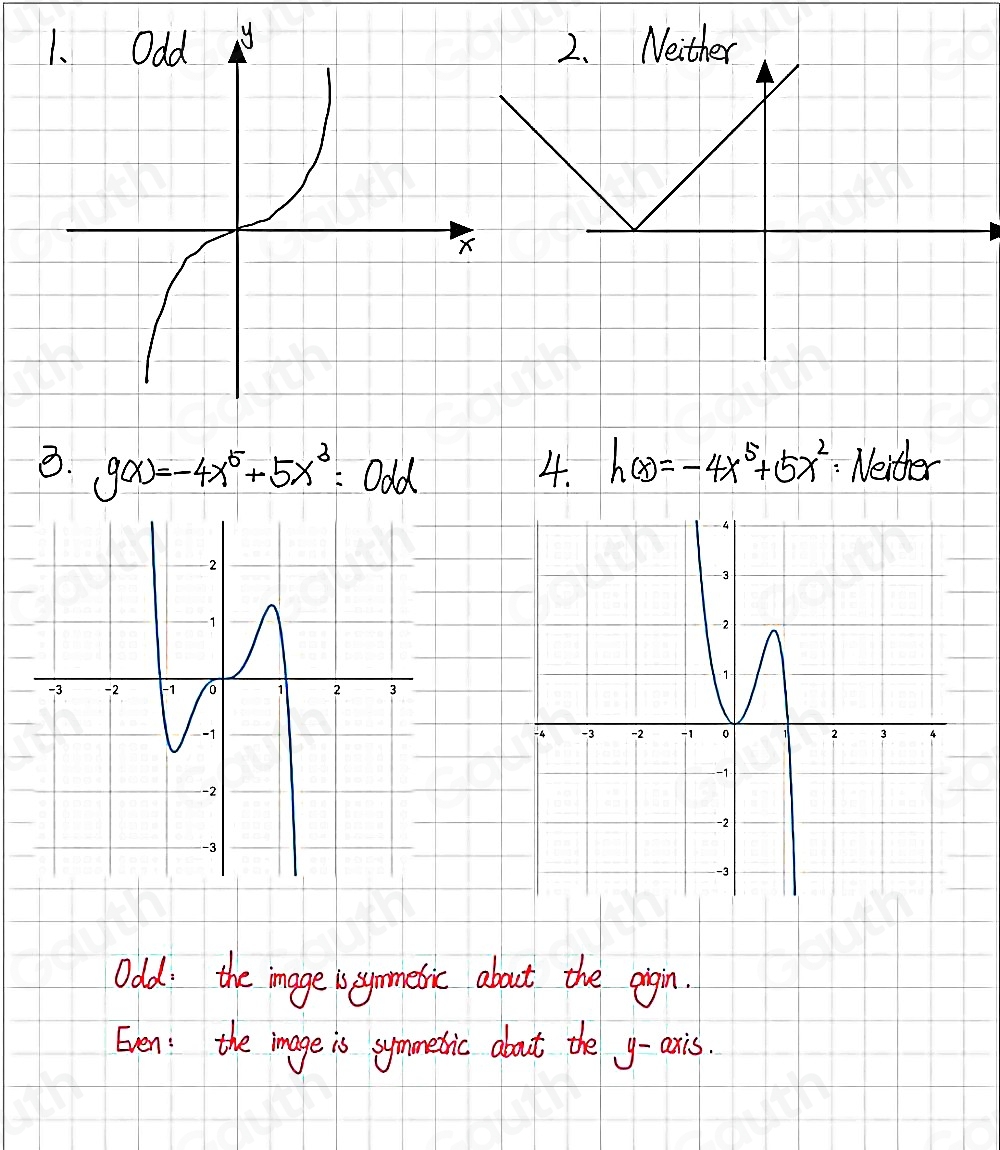 1. Odd y
2. Neither
x
3. g(x)=-4x⁵+5x³: Odd
4. h(x)=-4x⁵+5x²: Neither
2
1
-3 -2 -1 0 1 2 3
-1
-2
-3
4
3
2
1
-4 -3 -2 -1 0 1 2 3 4
-1
-2
-3
Odd: the image is symmetric about the origin.
Even: the image is symmetric about the y-axis.
Gauth